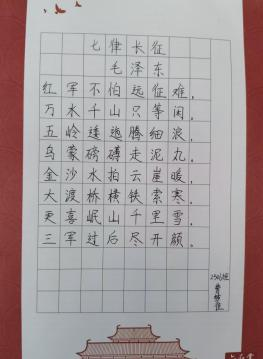 七律长征
毛泽东
红军不怕远征难，
万水千山只等闲，
五岭逶迤腾细浪，
乌蒙磅礴走泥丸，
金沙水拍云崖暖，
大渡桥横铁索寒，
更喜岷山千里雪，
三军过后尽开颜，